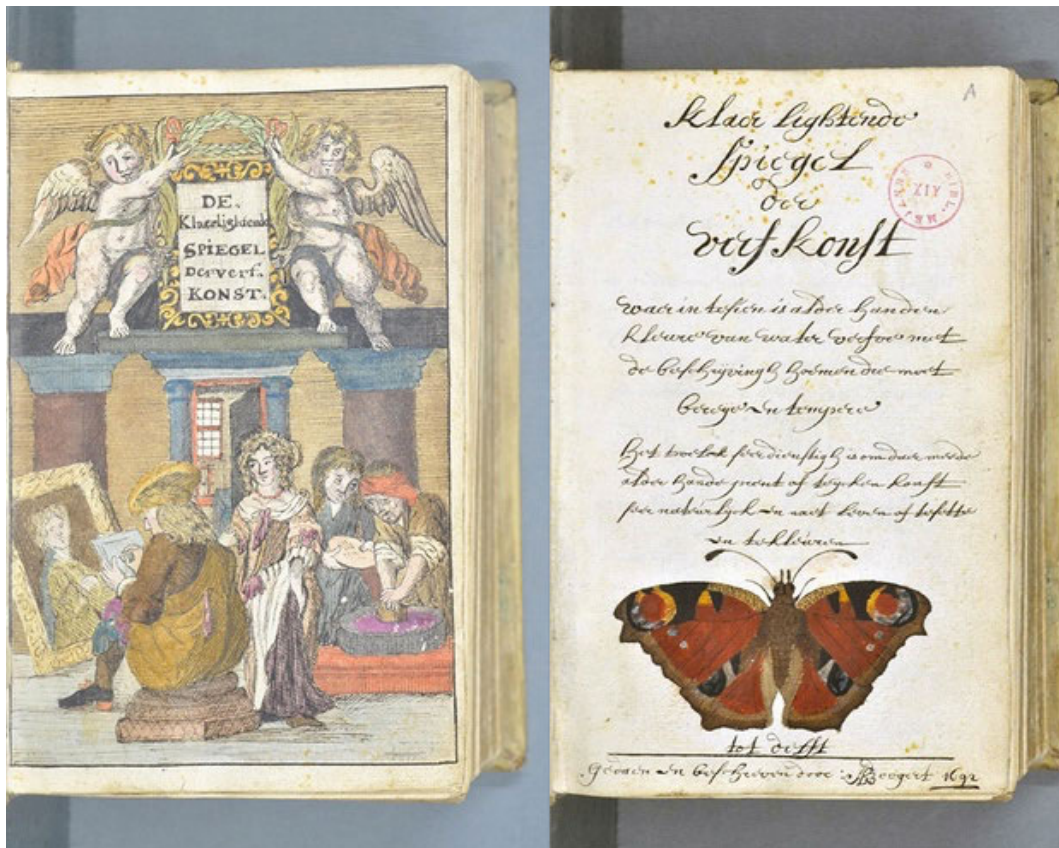 DE.
Klaerlightende
SPIEGEL
Der verf.
KONST.
A
klaer lightende
spiegel
der
verfkonst
BIBL. MEJANES
XIX
waer in te sien is alder handen
kleure van water verfve met
de beschrijvingh hoemen die moet
berege en tempere
het welck seer dienstigh is om daer mede
alder hande prent of teycken konst
seer natuerlyck en naet leven of
en te kleuren
tot delft
Gedaen en beschreven door: ABoogert 1692